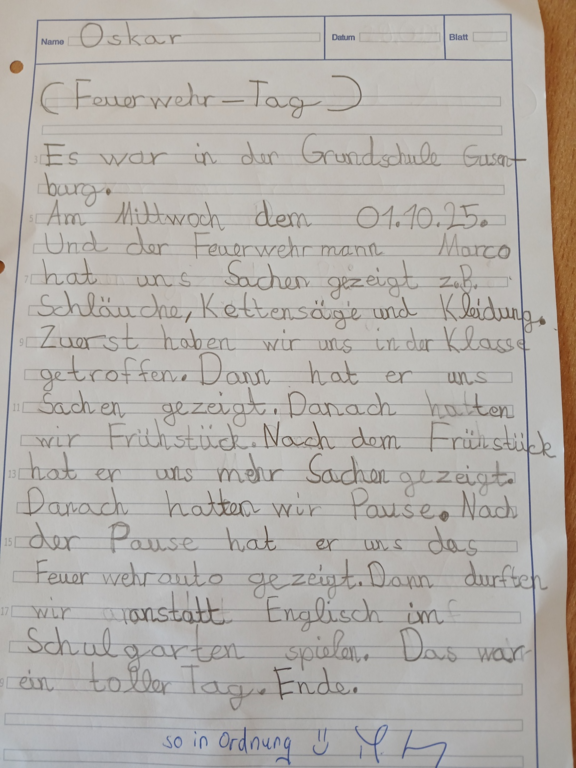 Name Oskar Datum Blatt
(Feuerwehr-Tag)
Es war in der Grundschule Gusen-
burg.
Am Mittwoch dem 01.10.25.
Und der Feuerwehrmann Marco
hat uns Sachen gezeigt z.B.
Schläuche, Kettensäge und Kleidung.
Zuerst haben wir uns in der Klasse
getroffen. Dann hat er uns
Sachen gezeigt. Danach hatten
wir Frühstück. Nach dem Frühstück
hat er uns mehr Sachen gezeigt.
Danach hatten wir Pause. Nach
der Pause hat er uns das
Feuerwehrauto gezeigt. Dann durften
wir anstatt Englisch im
Schulgarten spielen. Das war
ein toller Tag. Ende.
so in Ordnung